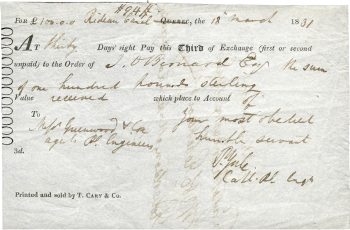 #944
FOR £ 100.0.0 Rideau Canal QUEBEC, the 12 March 1831
AT thirty Days' sight Pay this Third of Exchange (first or second
unpaid) to the Order of Bernard Esq the sum
of one hundred pounds sterling
Value received which place to Account of
To Your most obedt
Messrs Greenwood & Cox humble servant
Agts Rl Engineers
3d. Capt. Rl Engrs
Printed and sold by T. CARY & Co.